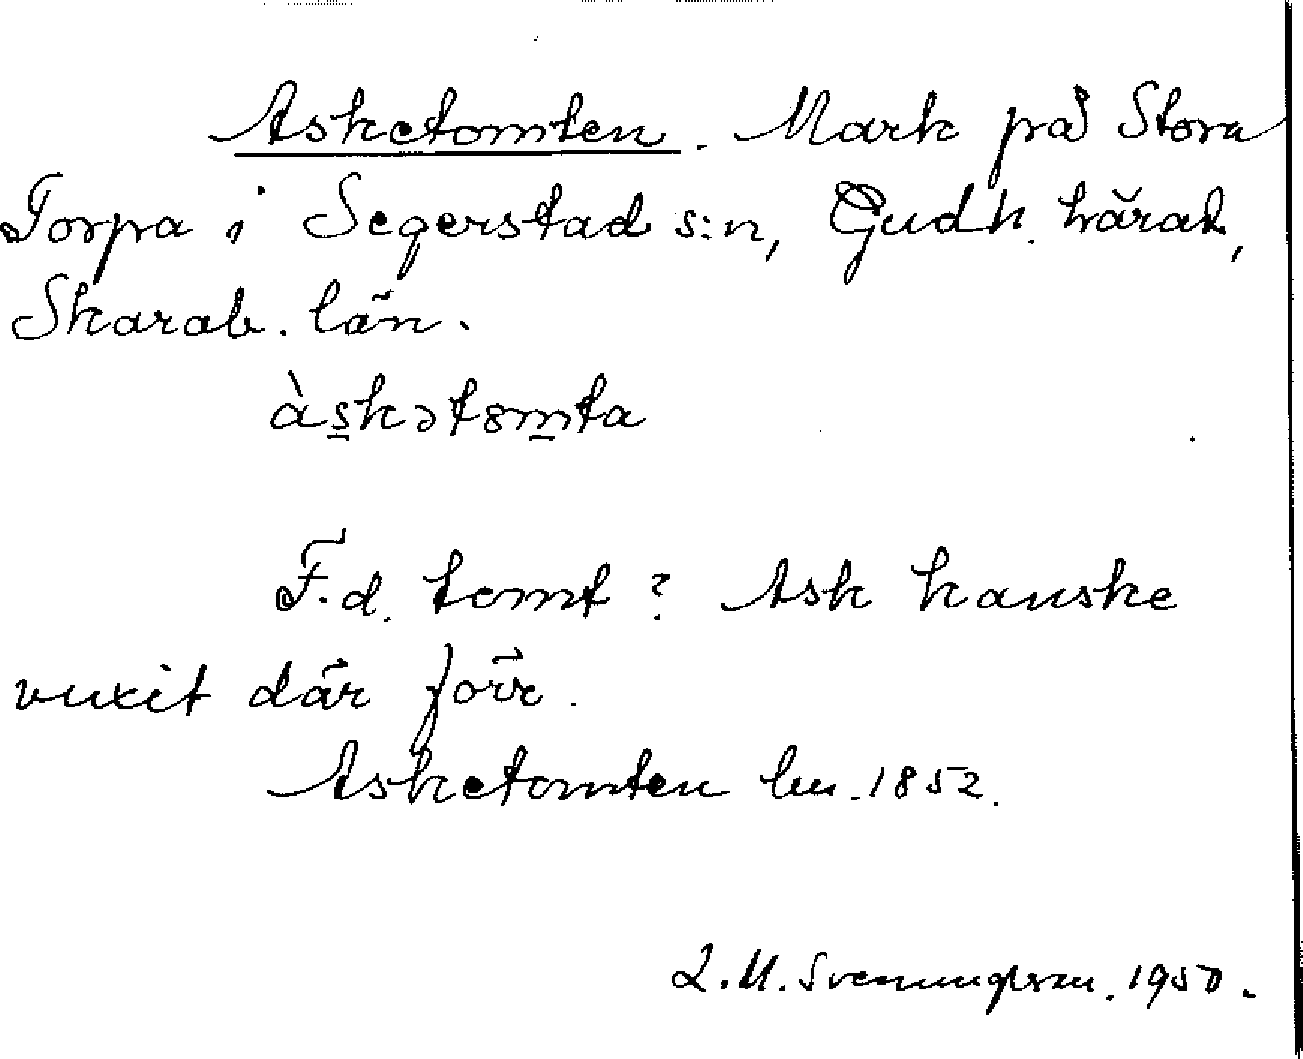 Asketomten. Mark på Stora
Torpa i Segerstad s:n, Gudh. härad,
Skarab. län.
às̲kətɷm̲ta
F.d. tomt? Ask kanske
vuxit där förr.
Asketomten lm. 1852.
L.M. Svenungsson. 1950.